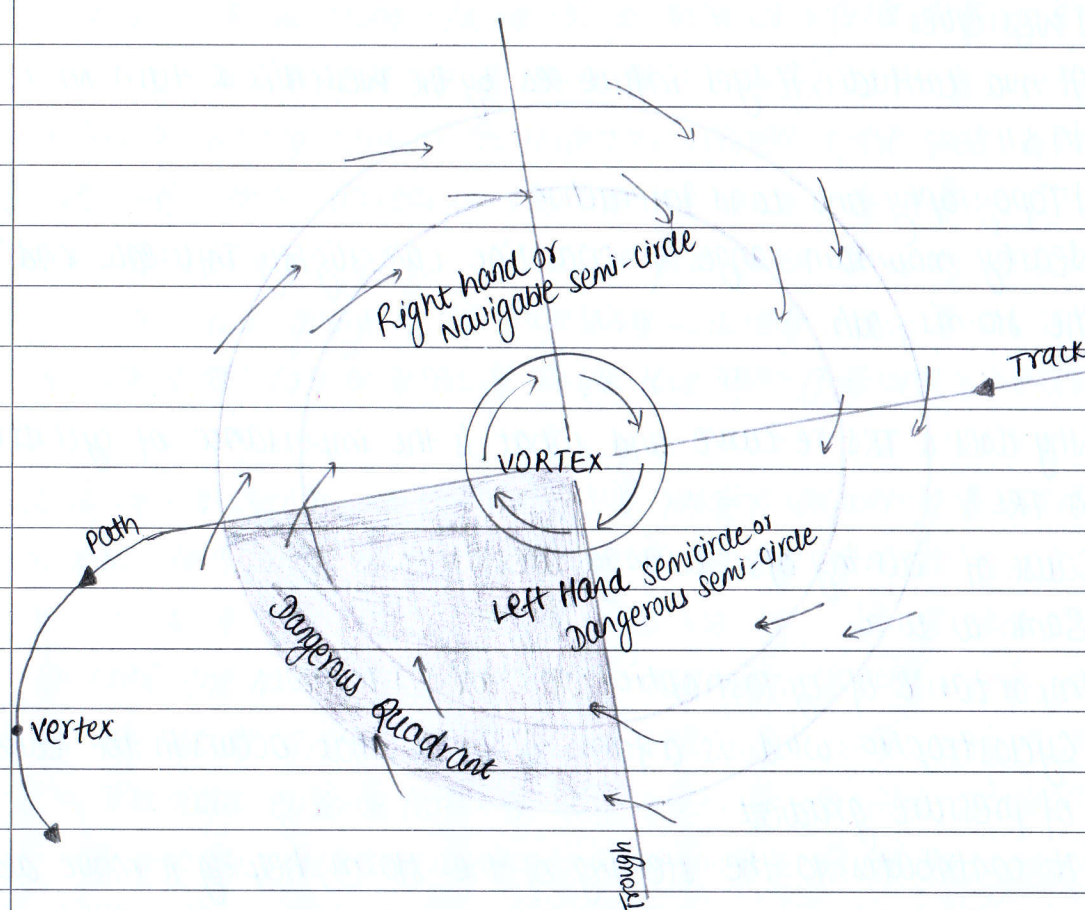 Right hand or
Navigable semi-circle
Track
VORTEx
Path
Left Hand semicircle or
Dangerous semi-circle
Dangerous
Quadrant
vertex
Trough